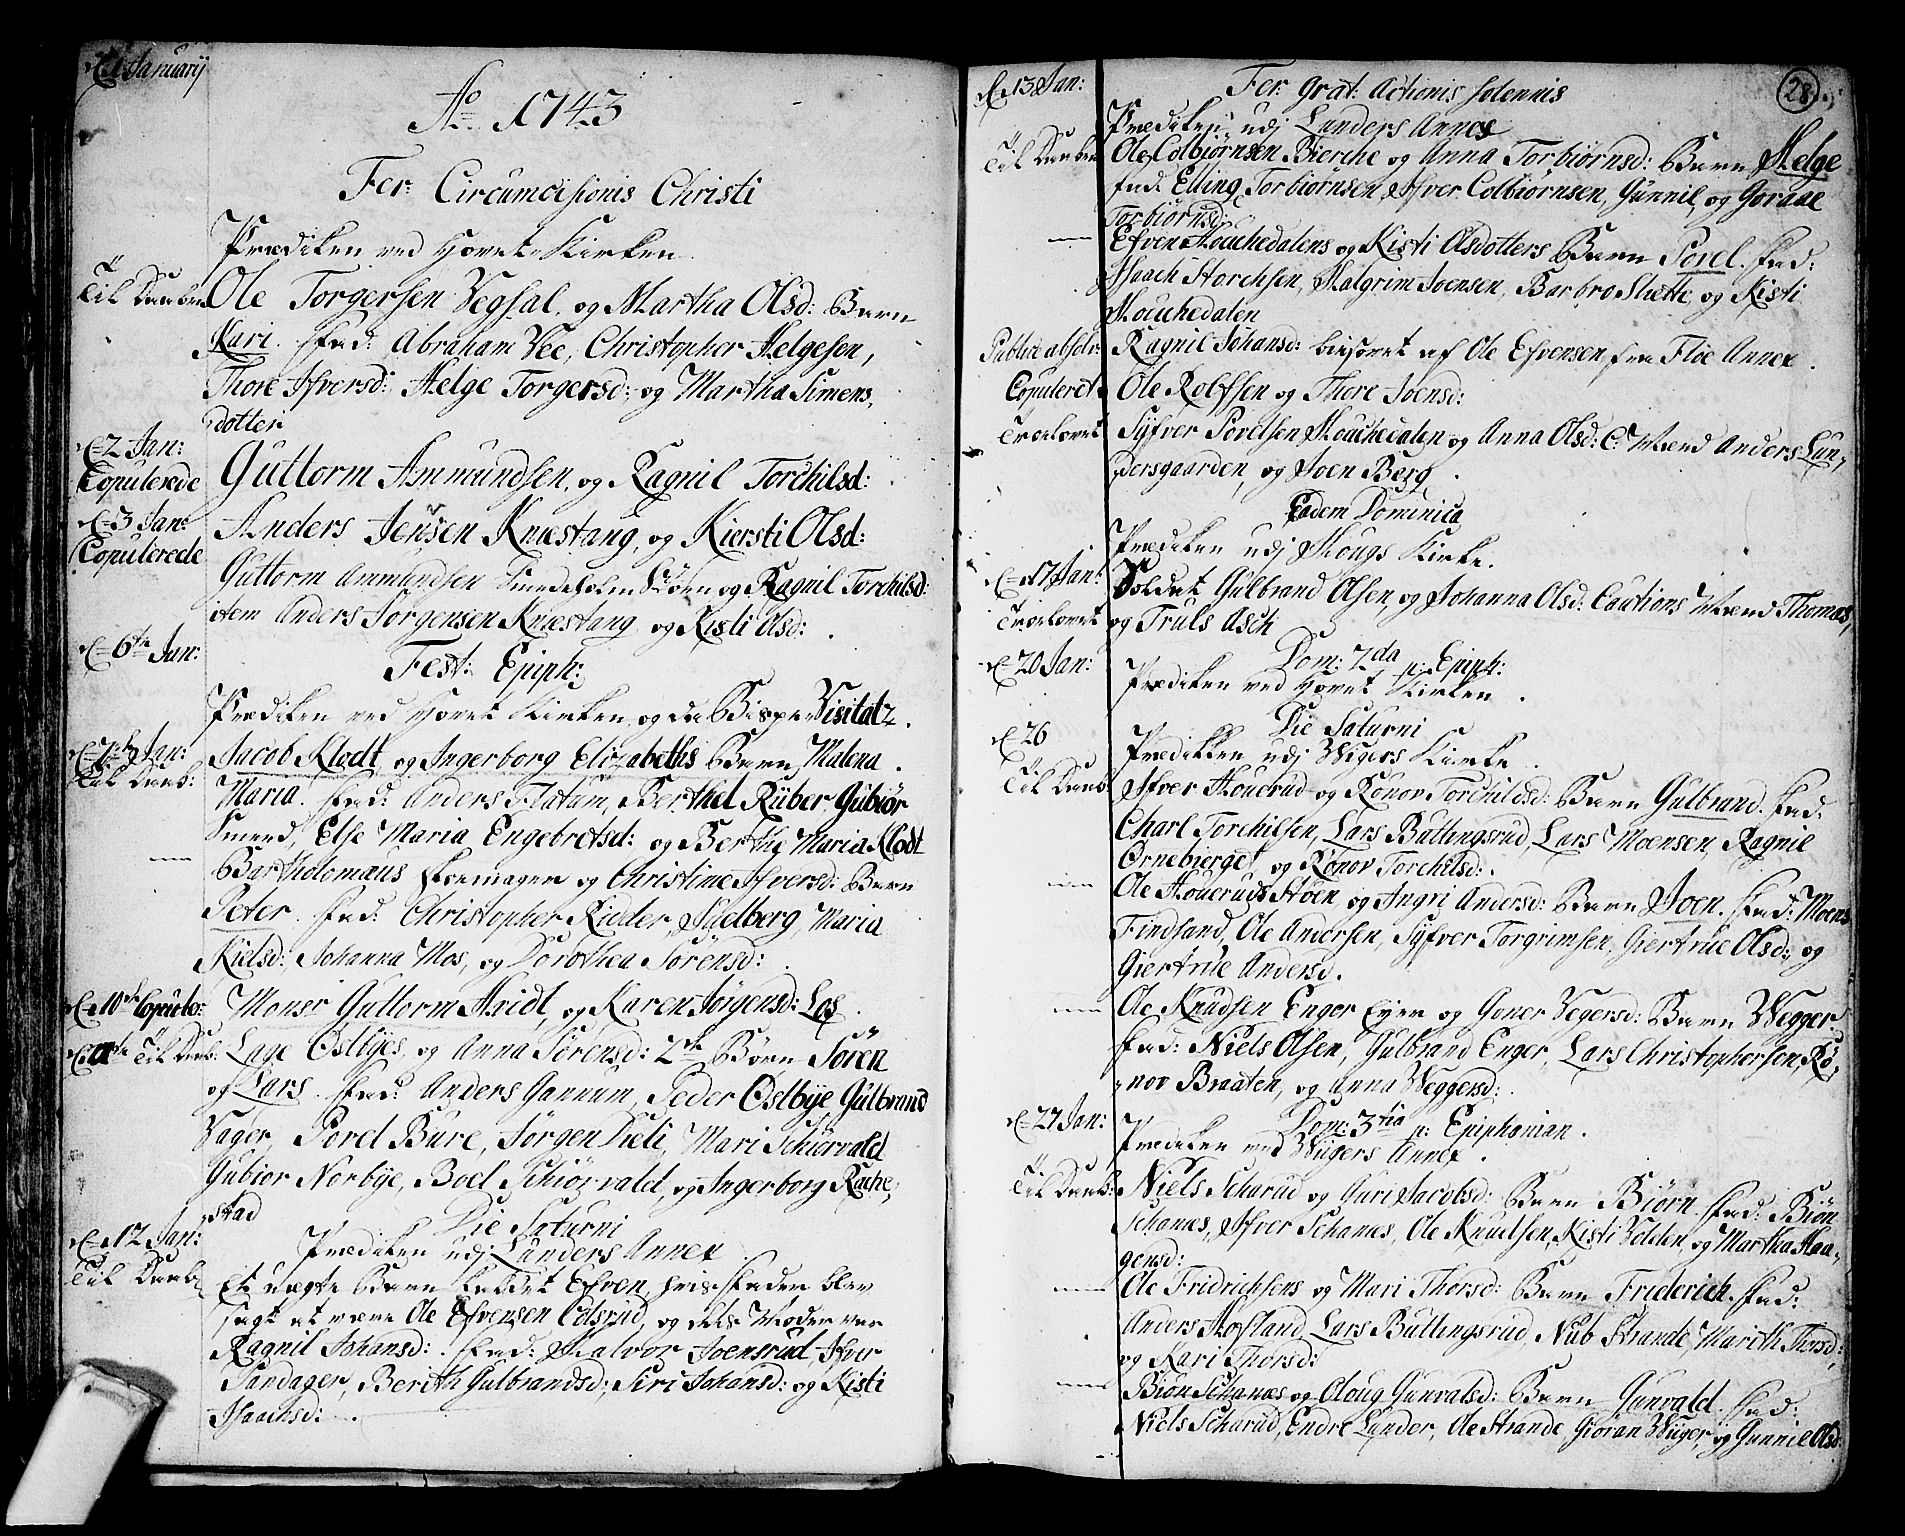 d. 1 January
Ao 1743
Fer: Circumcisionis Christi
Prædiken ved Hovet-Kirken
Til Daaben
Ole Torgersen Vegsal, og Martha Olsd: Barn
Kari. Fad: Abraham Vee, Christopher Helgesen,
Thore Ifversd: Helge Torgersd: og Martha Simens,
dotter
d. 2 Jan:
Copulerede
Guttorm Ammundsen, og Ragnil Torchilsd:
d. 3 Jan:
Copulerede
Anders Jensen Knæstang, og Kiersti Olsd:
Guttorm Ammundsen og Ragnil Torchilsd:
item Anders Jørgensen Knæstang og Kisti Olsd:
d. 6te Jan:
Fest: Epiph:
Prædiken ved Hovet Kirken, og da Bispe Visitatz.
d. 7de Jan:
Til Daab:
Jacob Klodt, og Ingerborg Elizabeths Barn Malena
Maria. Fad: Anders Flatum, Berthel Rüber Gubiør
Smed, Else Maria Engebretsd: og Berthe Maria Klodt
Bartholomæus og Christine Ifversd: Barn
Peter. Fad: Christopher Ridder, Hielberg, Maria
Kielsd: Johanna Mos, og Dorothea Sørensd:
d. 10de Copuler:
Monsr Guttorm Hvidt, og Karen Jørgensd: Los.
Til Daab:
Lage Østbyes, og Anna Sørensd: 2de Børn Søren
og Lars. Fad: Anders Gannum, Peder Østbye Gulbrand
Vager, Porel Bure, Jørgen Dieli, Mari Schiørvald
Gubior Norbye, Boel Schiørvald, og Ingerborg Rache,
stad
d. 12 Jan:
Die Saturni
Prædiken udj Lunders Annex
Til Daab
Et uægte Barn kaldet Efven, hvis Fader blev
sagt at være Ole Efvensen Colsrud, og dets Moder var
Ragnil Johansd: Fad: Halvor Joensrud Ifver
Sandager, Berith Gulbrandsd: Siri Johansd: og Kisti
Isaachsd:
28.
d. 13 Jan:
Fer: Grat: Actionis solennis
Prædiken udj Lunders Annex
Til Daaben
Ole Colbiørnsen Bierche og Anna Torbiørnsd: Barn Helge
fad: Elling Torbiørnsen, Ifver Colbiørnsen, Gunnil, og Goraae
Torbiørnsd:
Efven Houchedalens og Kisti Olsdotters Barn Porel. Fad:
Isaach Storchsen, Halgrim Joensen, Barbro Slætte, og Kisti
Houchedalen
Publice absolv:
Ragnil Johansd: besovet af Ole Efvensen fra Floe Annex.
Copuleret
Ole Rolfsen og Thore Joensd:
Troelovet
Syfver Povelsen Houchedalen og Anna Olsd: C. Mænd Anders Lun,
dersgaarden, og Joen Berg.
Eadem Dominica
Prædiken udj Hougs Kirke.
d. 17 Jan:
Troelovet
Soldat Gulbrand Olsen, og Johanna Olsd: Cautions Mænd Thomas,
og Truls Asch
d. 20 Jan:
Dom: 2da p: Epiph:
Prædiken ved Hovet Kirken.
d. 26
Die Saturni
Prædikken udj Wigers Kirke.
Til Daab:
Ifver Houcrud og Rønov Torchildsd: Barn Gulbrand. Fad:
Charl Torchilsen, Lars Buttingsrud, Lars Moensen, Ragnil
Ørnebierget, og Rønov Torchilsd:
Ole Houcruds Støen, og Ingri Andersd: Barn Joen. Fad: Moens
Findsand, Ole Andersen, Syfver Torgrimsen, Giertrue Olsd: og
Giertrue Andersd.
Ole Knudsen Enger Eyer og Goner Vegersd: Barn Wegger
Fad: Niels Olsen, Gulbrand Enger, Lars Christophersen, Rø,
nov Braaten, og Anna Weggersd:
d. 27 Jan:
Dom: 3tia p: Epiphanian.
Prædiken ved Wigers Annex.
Til Daab:
Niels Scharud og Guri Jacobsd: Barn Biørn. Fad: Biøn
Schanes, Ifver Schanes, Ole Knudsen, Kisti Volden, og Martha Haa,
gensd:
Ole Fridrichsens og Mari Thorsd: Barn Friderich. Fad:
Anders Hofland, Lars Buttingsrud Nub Strande, Marith Thorsd:,
og Kari Thorsd:
Biøn Schanæs og Cloug Gunvalsd: Barn Gunvald. Fad:
Niels Scharud, Endre Lunder, Ole Strande, Giøran Wiiger, og Gunnil Olsd: